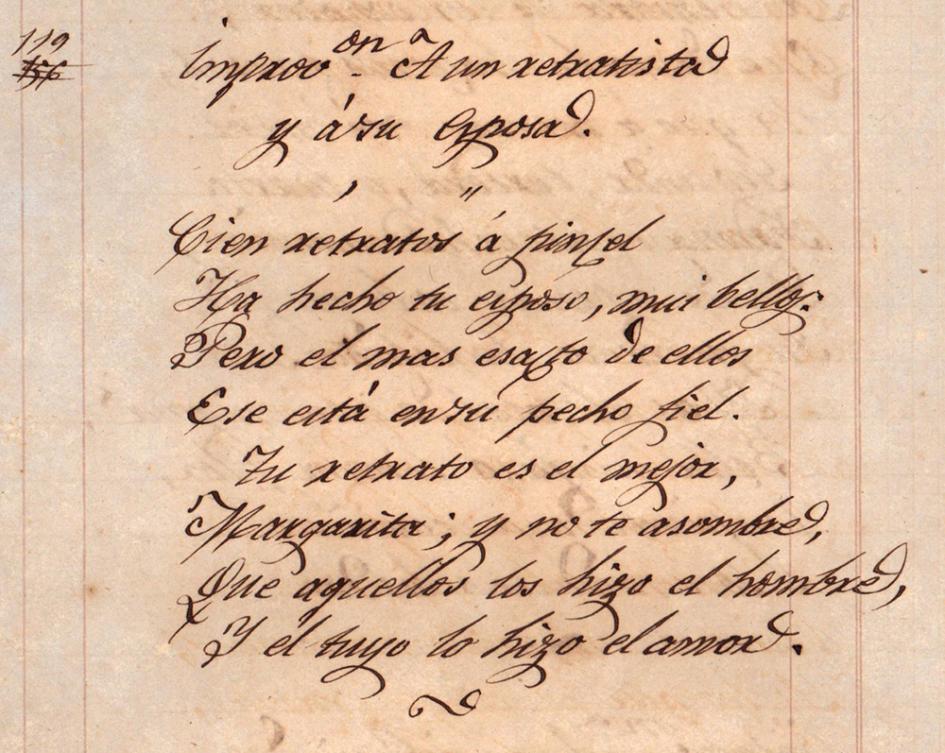 119
156
Improv.on A un retratista
y á su Esposa.
Cien retratos á pincel
Ha hecho tu esposo, mui bellos:
Pero el mas esacto de ellos
Ese está en su pecho fiel.
Tu retrato es el mejor,
Margarita; y no te asombre,
Que aquellos los hizo el hombre,
Y el tuyo lo hizo el amor.